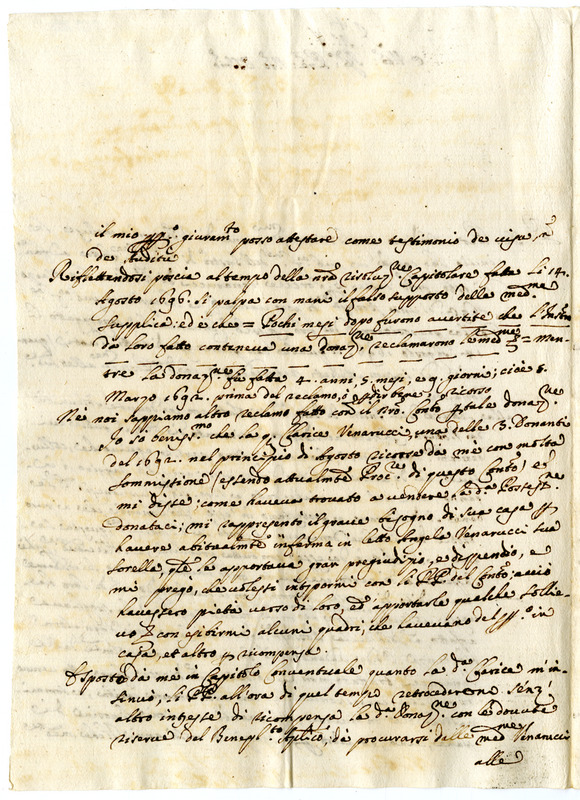 il mio giuramto posso attestare come testimonio de visu, e
de auditu
Riflettendosi poscia al tempo della nra risoluzne Capitolare fatta li 14.
Agosto 1696. si palpa con mani il falso supposto della medma
supplica: ed è che = Pochi mesi dopo furono avertite che l'Instro
da loro fatto conteneva una donazne, reclamarono le medme = Men-
tre la donazne fu fatta 4. anni, 5. mesi, e 9. giorni; cioè
Marzo 1692. prima del reclamo, o ricorso
Nè noi sappiamo altro reclamo fatto con il nro. Conto tale donazne.
Io so benissmo che la Clarice Venarucci, una delle 3. Donanti
del 1692. nel principio di Agosto ricorse da me con molta
somissione (essendo attualmte Procre di questo Conto) e
mi disse; come haveva trovato a vendere la da Possesne
donataci; mi rappresentò il grave bisogno di sua casa
havere abitualmte inferma in letto Angela Venarucci sua
sorella, qle le apportava gran pregiudizio, e dispendio, e
mi pregò, che volessi interpormi con li PP. del Conto, acciò
havessero pietà verso di loro, ed apportarle qualche sollie-
vo con esibirmi alcuni quadri, che havevano del in
casa, et altro ricompensa.
Esposto da me in Capitolo Conventuale quanto la da Clarice m'in-
sinuò; li PP. allora di quel tempo retrocederono senz'
altro intresse di ricompensa la da Donazne con le dovute
riserve del Beneplto da procurarsi dalle medme Venarucci
alle